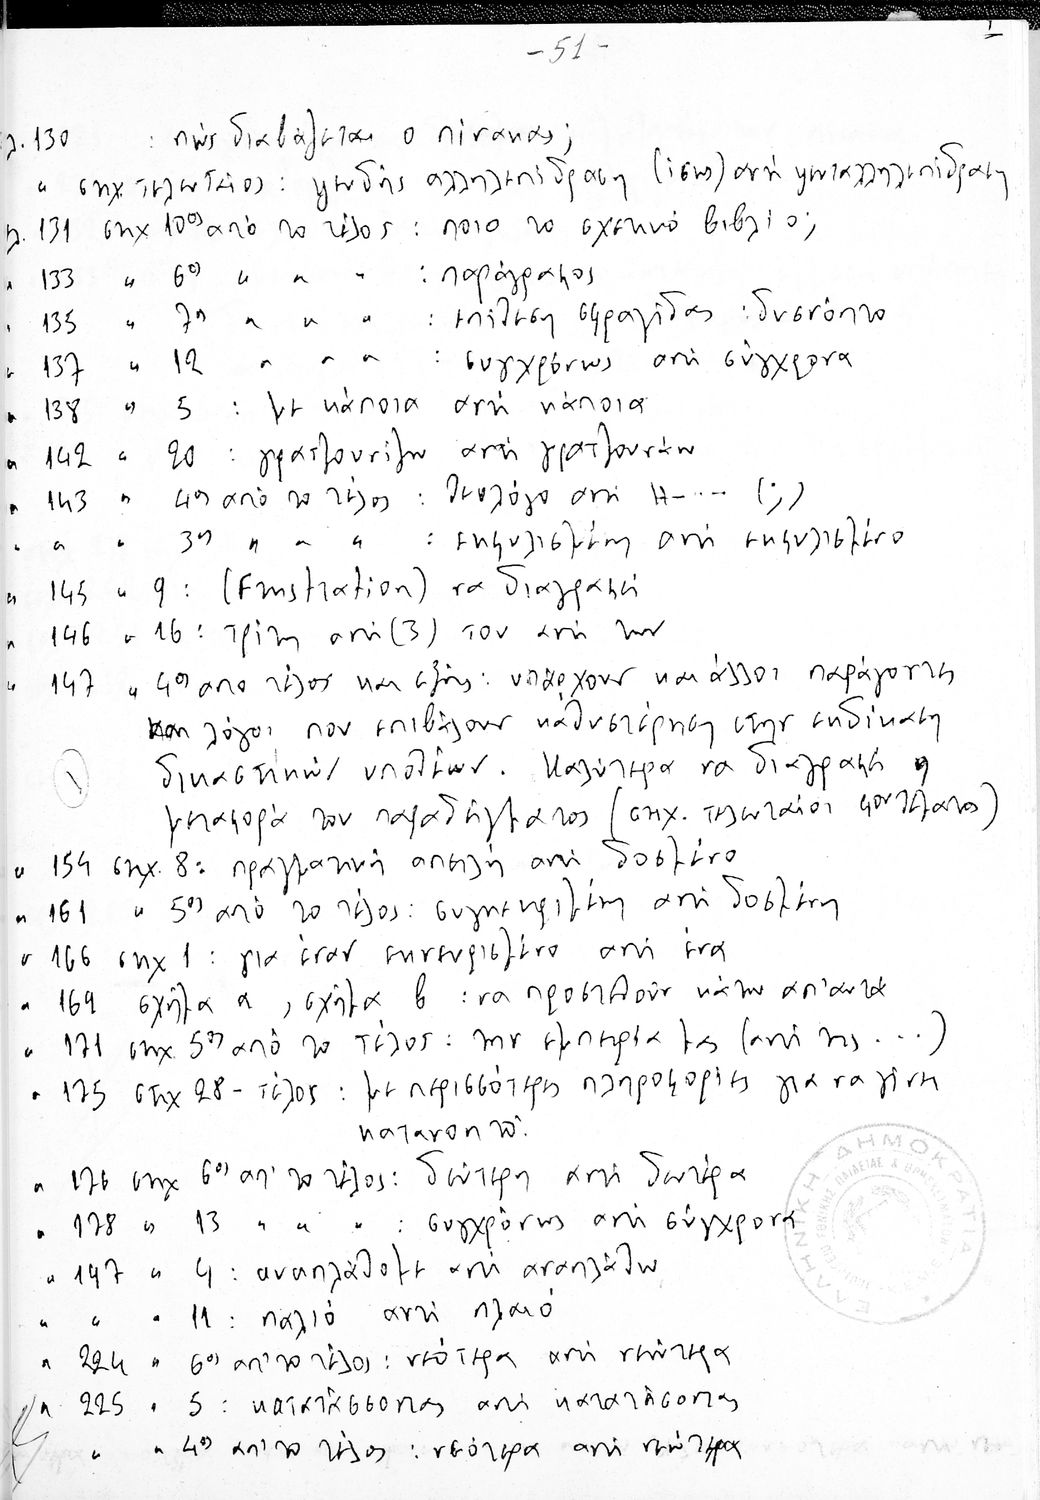 -51-
λ. 130 : πώς διαβάζεται ο πίνακας;
" στιχ. τελευταίος: ψευδής αλληλεπίδραση (ίσως) αντί ψευταλληλεπίδραση
λ. 131 στιχ 10ος από το τέλος : ποιο το σχετικό βιβλίο;
" 133 " 6ος " " " : παράγραφος
" 135 " 7η " " " : επίθεση σφραγίδας : δυσνόητο
" 137 " 12 " " " : συγχρόνως αντί σύγχρονα
" 138 " 5 : με κάποια αντί κάποια
" 142 " 20 : γρατζουνίζω αντί γρατζουνάω
" 143 " 4ος από το τέλος : θεολόγο αντί Η-... (;)
" " " 3ος " " " : εκφυλισμένη αντί εκφυλισμένο
" 145 " 9 : (Frustration) να διαγραφεί
" 146 " 16 : τρίτη αντί (3) του αντί των
" 147 " 4ος απο τέλος και εξής: υπάρχουν και άλλοι παράγοντες
και λόγοι που επιβάλουν καθυστέρηση στην εκδίκαση
δικαστικών υποθέσεων. Καλύτερα να διαγραφεί η
1
μεταφορά του παραδείγματος (στιχ. τελευταίοι μοντέλατος)
" 154 στιχ. 8: πραγματική απειλή αντί δοσμένο
" 161 " 5ος από το τέλος: συγκεκριμένη αντί δοσμένη
" 166 στιχ 1 : για έναν εκνευρισμένο αντί ένα
" 169 σχήμα α, σχήμα β : να προστεθούν κάτω απ' αυτά
" 171 στιχ. 5ος από το τέλος: την εμπειρία μας (αντί της ...)
" 175 στιχ 28 - τέλος : με περισσότερες πληροφορίες για να γίνει
κατανοητό.
" 176 στιχ 6ος απ' το τέλος: δεύτερη αντί δευτέρα
" 178 " 13 " " " : συγχρόνως αντί σύγχρονα
" 197 " 4 : αναπλάθομε αντί αναπλάθω
" " " 11 : παλιό αντί πλαιό
" 224 " 6ος απ' το τέλος : νεότερα αντί νεώτερα
" 225 " 5 : κατατάσσοντας αντί κατατάσοντας
" " 4ος απ' το τέλος : νεότερα αντί νεώτερα
ΕΛΛΗΝΙΚΗ ΔΗΜΟΚΡΑΤΙΑ